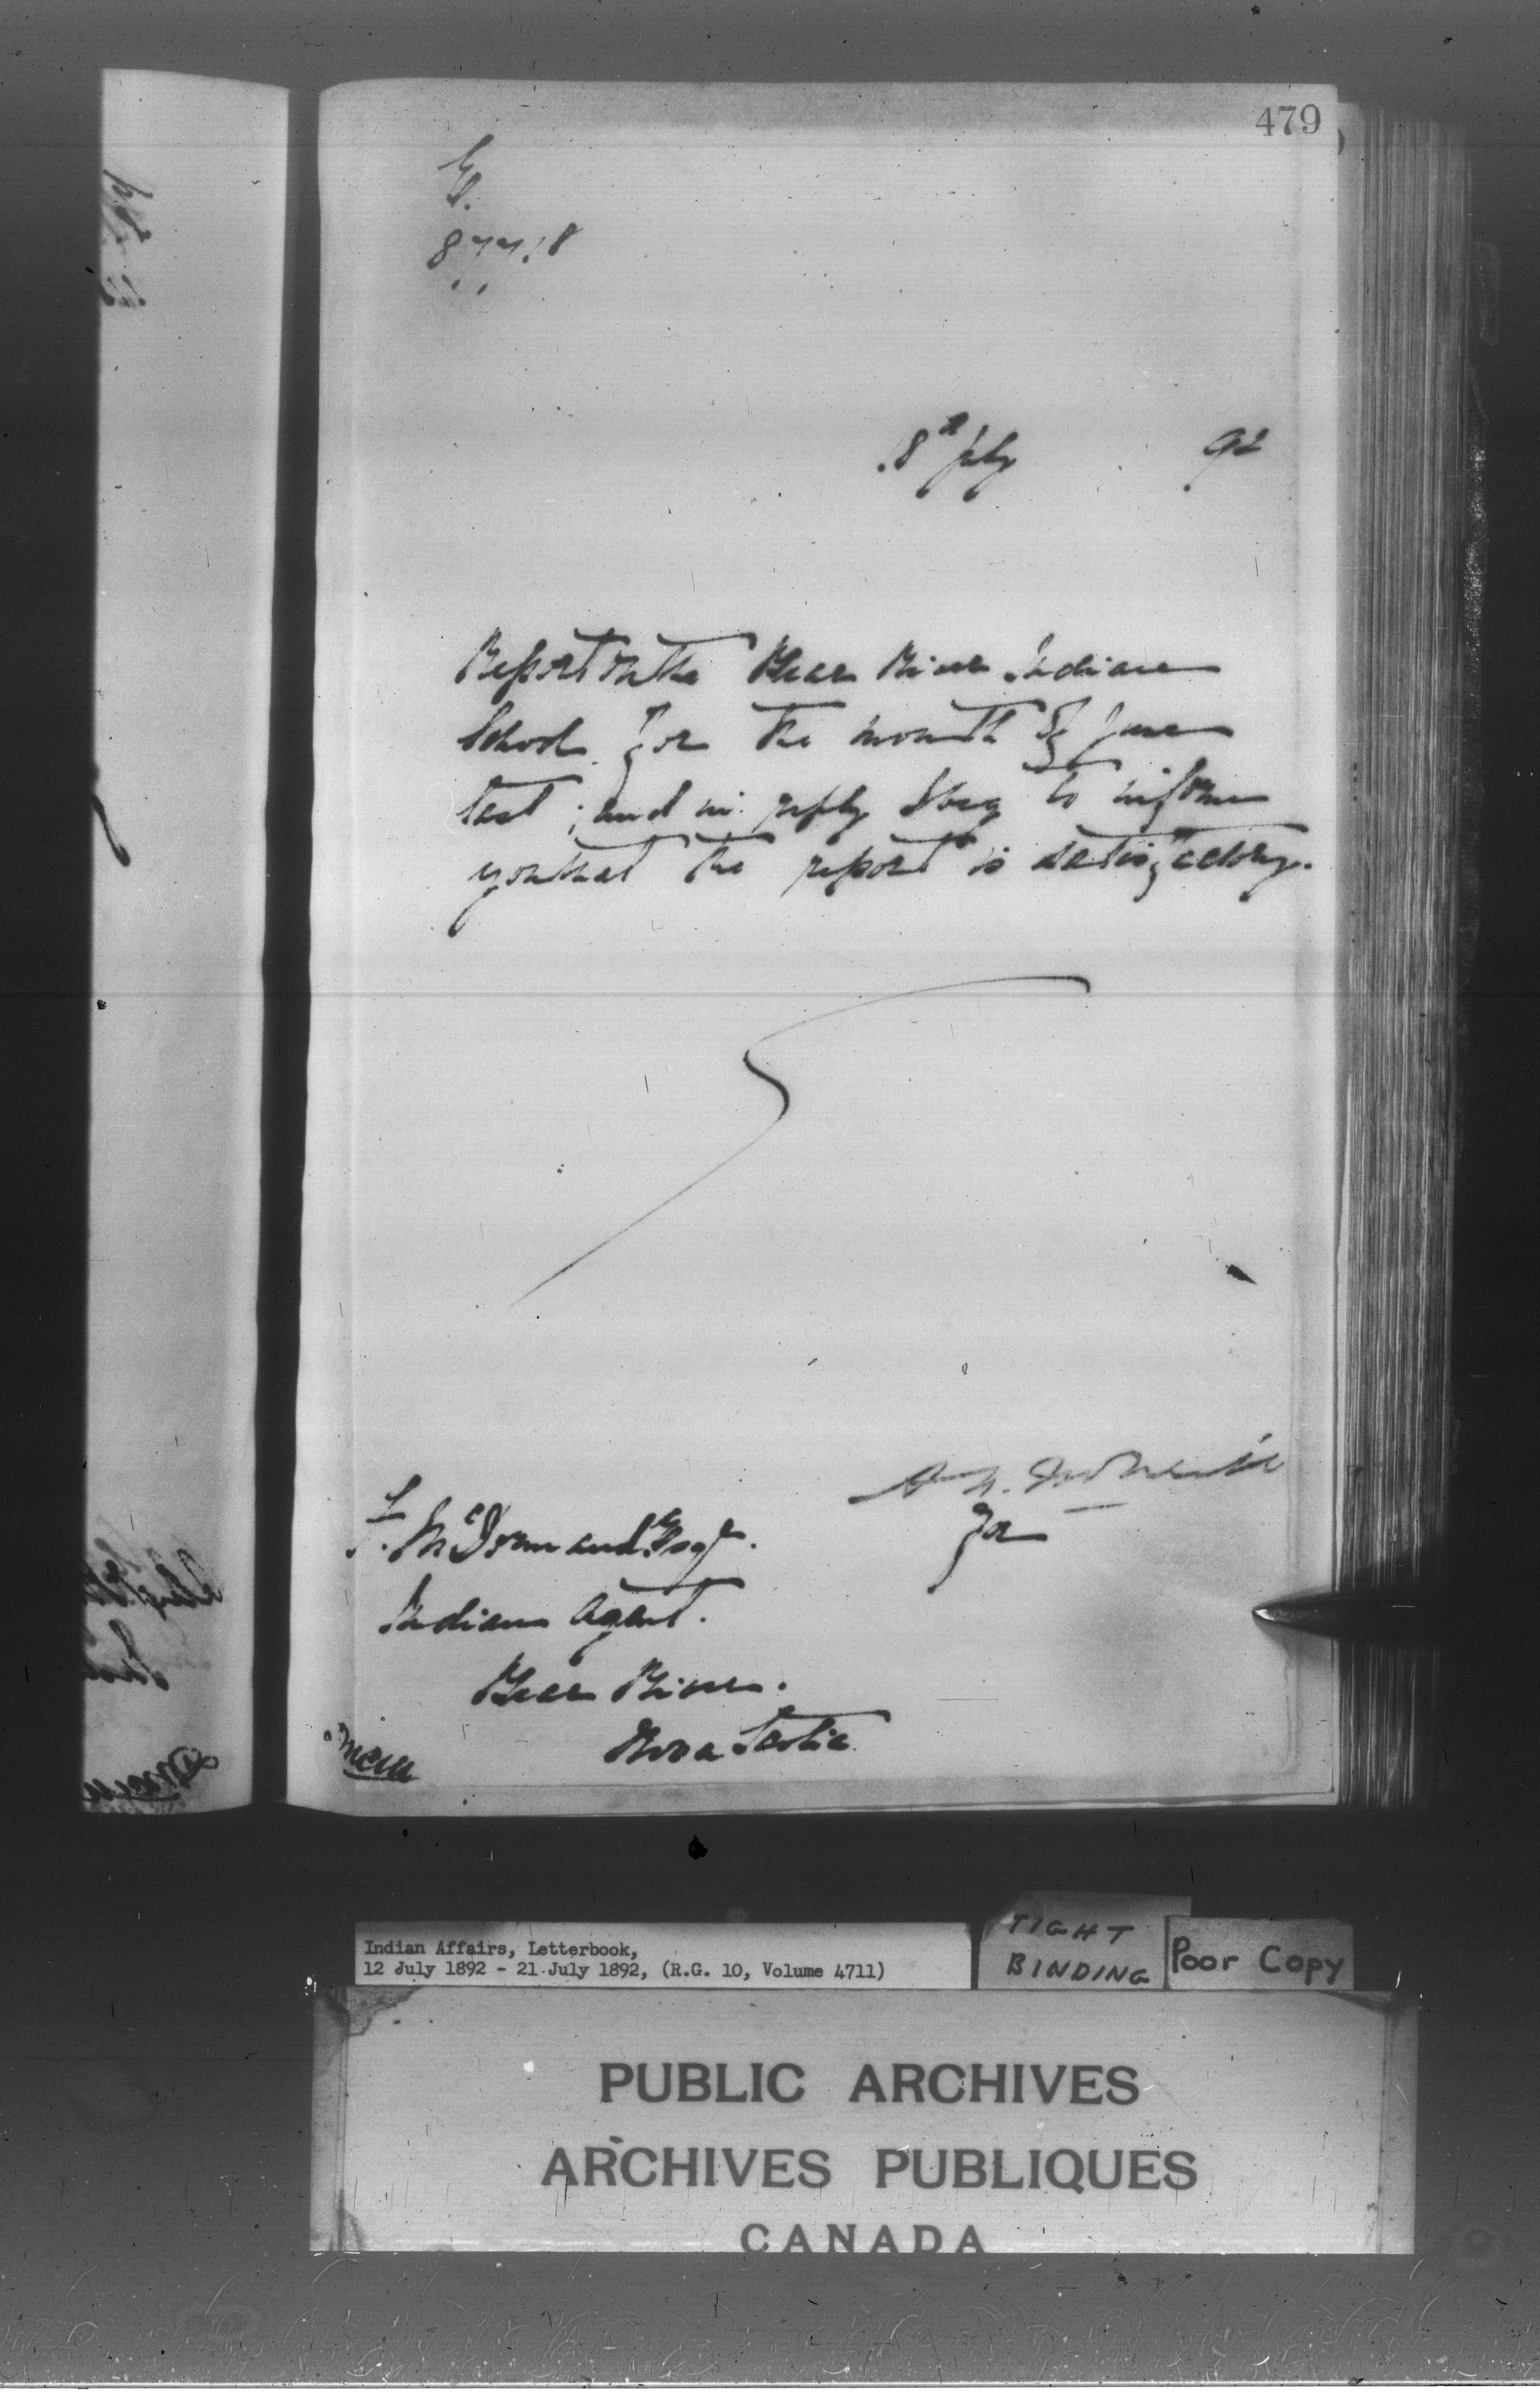 479
E.
877.18
18th July 92
Report on the Bear River Indian
School for the month of June
last; and in reply I beg to inform
you that the report is satisfactory.
F. McDormand Esqr.
for
Indian Agent.
Bear River.
Nova Scotia
Indian Affairs, Letterbook,
12 July 1892 - 21 July 1892, (R.G. 10, Volume 4711)
TIGHT
BINDING
Poor Copy
PUBLIC ARCHIVES
ARCHIVES PUBLIQUES
CANADA